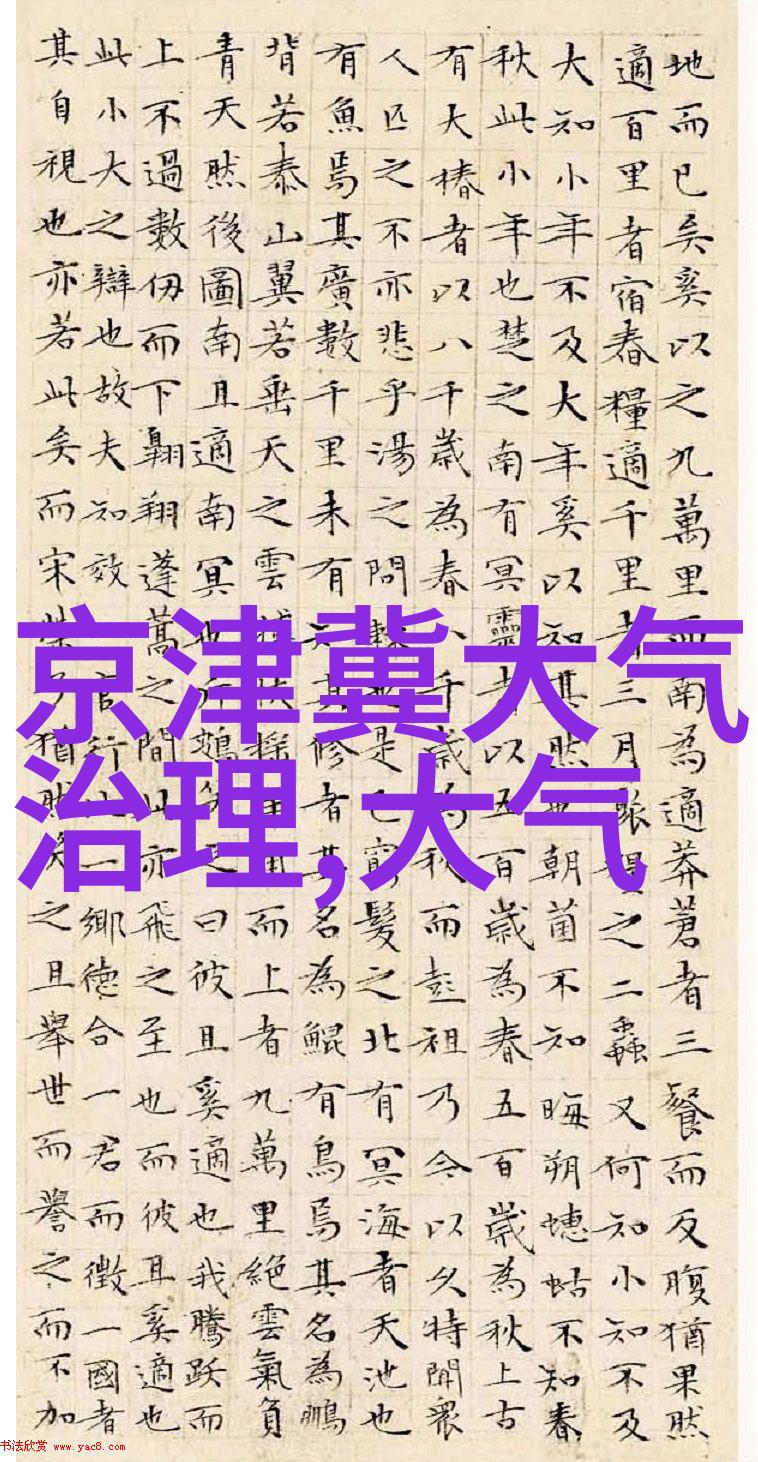 地而已矣奚以之九萬里而南為適莽蒼者三餐而反腹猶果然
適百里者宿舂糧適千里者三月聚糧之二蟲又何知小知不及
大知小年不及大年奚以知其然也朝菌不知晦朔蟪蛄不知春
秋此小年也楚之南有冥靈者以五百歲為春五百歲為秋上古
有大椿者以八千歲為春八千歲為秋而彭祖乃今以久特聞衆
人匹之不亦悲乎湯之問棘也是已窮髮之北有冥海者天池也
有魚焉其廣數千里未有知其修者其名為鯤有鳥焉其名為鵬
背若泰山翼若垂天之雲摶扶搖羊角而上者九萬里絕雲氣負
青天然後圖南且適南冥也斥鴳笑之曰彼且奚適也我騰躍而
上不過數仞而下翱翔蓬蒿之間此亦飛之至也而彼且奚適也
此小大之辯也故夫知效一官行比一鄉德合一君而徵一國者
其自視也亦若此矣而宋榮子猶然笑之且舉世而譽之而不加
京津冀大气
治理,大气
书法欣赏 www.yac8.com